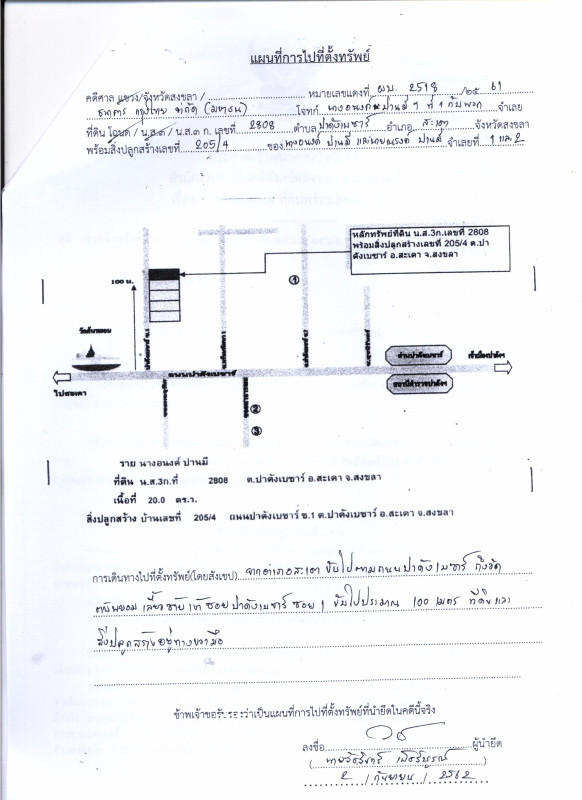 แผนที่การไปที่ตั้งทรัพย์
คดีศาล แขวง/จังหวัดสงขลา / หมายเลขแดงที่ ผบ. 2518 /๒๕ 61
ธนาคาร กรุงไทย จำกัด (มหาชน) โจทก์ ที่ 1 กับพวก จำเลย
ที่ดิน โฉนด / น.ส.๓ / น.ส.๓ ก. เลขที่ 2808 ตำบล ปาดังเบซาร์ อำเภอ สะเดา จังหวัดสงขลา
พร้อมสิ่งปลูกสร้างเลขที่ 205/4 ของ นางอนงค์ ปานมี และนายณรงค์ ปานมี จำเลยที่ 1 และ 2
หลักทรัพย์ที่ดิน น.ส.3ก.เลขที่ 2808
พร้อมสิ่งปลูกสร้างเลขที่ 205/4 ต.ปา
ดังเบซาร์ อ.สะเดา จ.สงขลา
100 ม.
1
ถนนปาดังเบซาร์
ด่านปาดังเบซาร์
สถานีตำรวจปาดังฯ
ไปสะเดา
2
3
ราย นางอนงค์ ปานมี
ที่ดิน น.ส.3ก.ที่ 2808 ต.ปาดังเบซาร์ อ.สะเดา จ.สงขลา
เนื้อที่ 20.0 ตร.วา.
สิ่งปลูกสร้าง บ้านเลขที่ 205/4 ถนนปาดังเบซาร์ ซ.1 ต.ปาดังเบซาร์ อ.สะเดา จ.สงขลา
การเดินทางไปที่ตั้งทรัพย์(โดยสังเขป) จากอำเภอสะเดา ขับไปตามถนนปาดังเบซาร์ ถึงวัด
เลี้ยวซ้าย เข้าซอยปาดังเบซาร์ ซอย 1 ขับไปประมาณ 100 เมตร ที่ดินและ
สิ่งปลูกสร้างอยู่ทางขวามือ
ข้าพเจ้าขอรับรองว่าเป็นแผนที่การไปที่ตั้งทรัพย์ที่นำยึดในคดีนี้จริง
ลงชื่อ ผู้นำยึด
2 / กันยายน / 2562